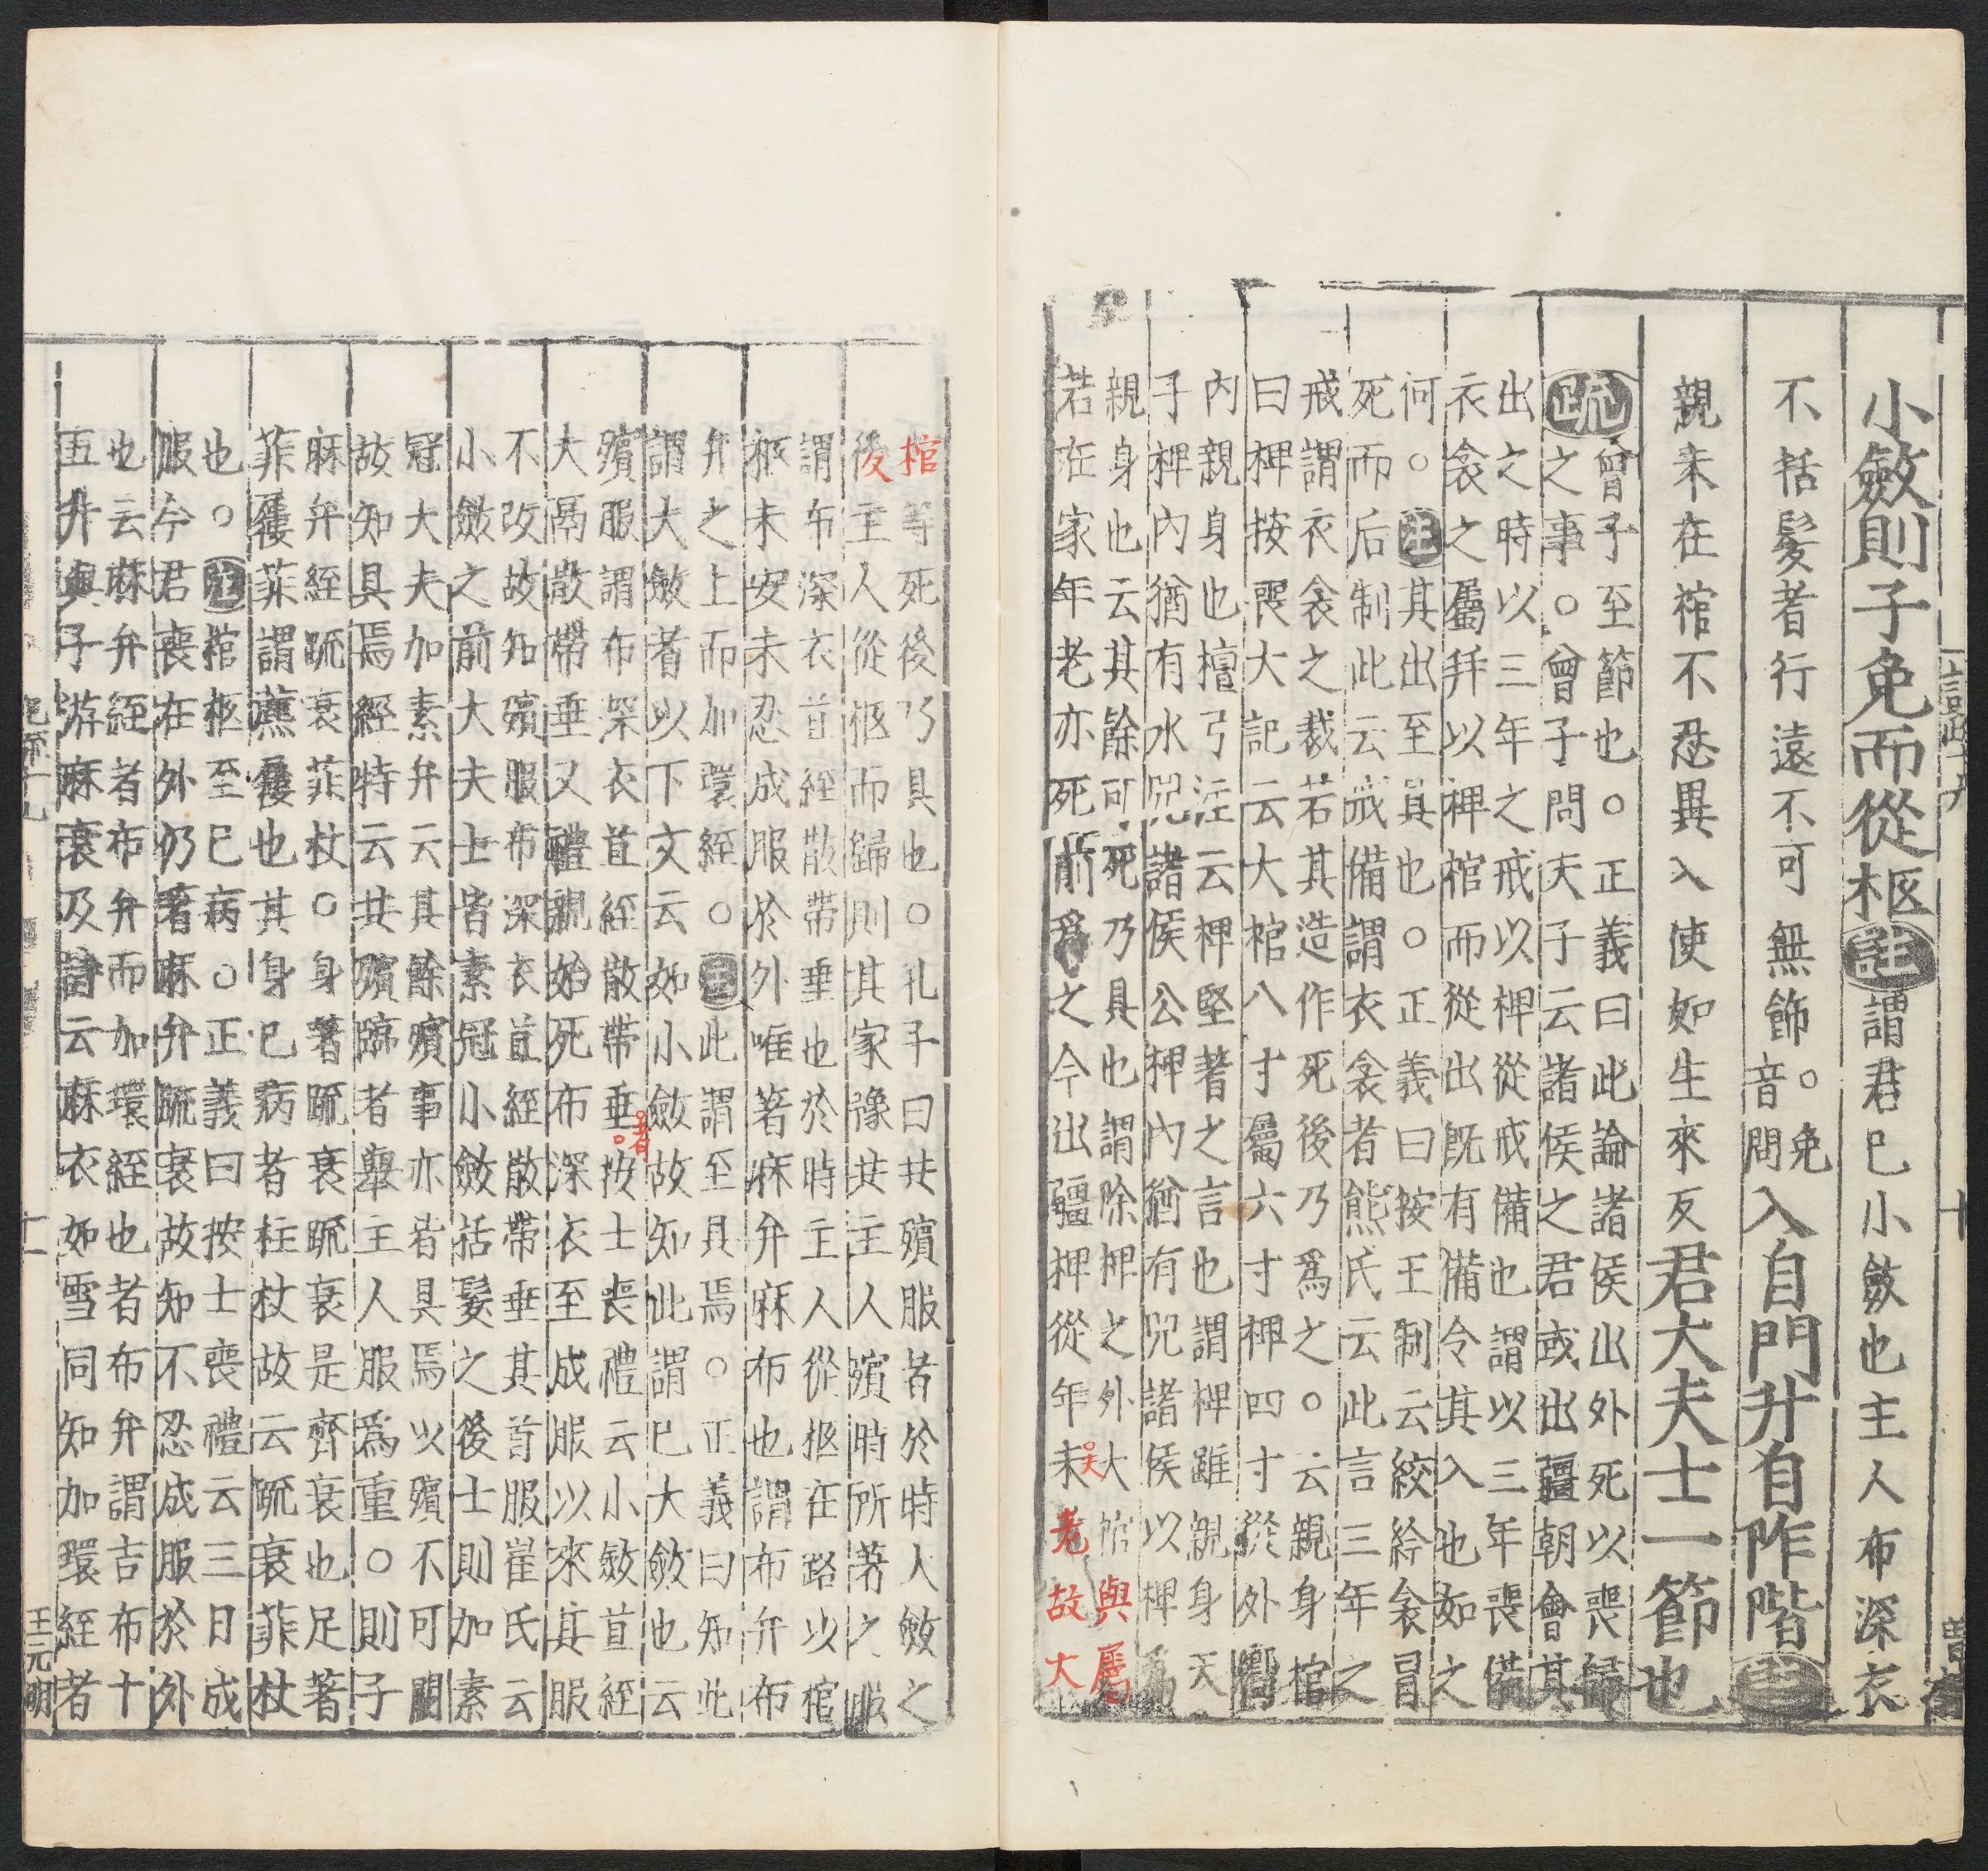 小斂則子免而從柩註謂君已小斂也主人布深衣
不括髮者行遠不可無飾。免音問入自門升自阼階註
親未在棺不忍異入使如生來反君大夫士一節也
疏曾子至節也○正義曰此論諸侯出外死以喪歸
之事○曾子問夫子云諸侯之君或出疆朝會其
出之時以三年之戒以椑從戒備也謂以三年喪備
衣衾之屬并以椑棺而從出既有備令其入也如之
何○註其出至具也○正義曰按王制云絞紟衾冒
死而后制此云戒備謂衣衾者熊氏云此言三年之
戒謂衣衾之裁若其造作死後乃爲之○云親身棺
曰椑按喪大記云大棺八寸屬六寸椑四寸從外嚮
內親身也檀弓注云椑堅著之言也謂椑雖親身天
子椑內猶有水兕諸侯公椑內猶有兕諸侯以椑爲
親身也云其餘可死乃具也謂除椑之外大棺與屬
若在家年老亦死前爲之今出疆椑從年未老故大
棺等死後乃具也○孔子曰共殯服者於時人斂之
後主人從柩而歸則其家豫共主人殯時所著之服
謂布深衣苴絰散帶垂也於時主人從柩在路以棺
柩未安未忍成服於外唯著麻弁麻布也謂布弁布
弁之上而加環絰○註此謂至具焉○正義曰知此
謂大斂者以下文云如小斂故知此謂已大斂也云
殯服謂布深衣苴絰散帶垂者按士喪禮云小斂苴絰
大鬲散帶垂又禮親始死布深衣至成服以來其服
不改故知殯服布深衣苴絰散帶垂其首服崔氏云
小斂之前大夫士皆素冠小斂括髮之後士則加素
冠大夫加素弁云其餘殯事亦皆具焉以殯不可闕
故知具焉經特云共殯臨者舉主人服爲重○則子
麻弁絰疏衰菲杖○身著疏衰疏衰是齊衰也足著
菲屨菲謂藨屨也其身已病者柱杖故云疏衰菲杖
也○註棺柩至已病○正義曰按士喪禮云三日成
服今君喪在外仍著麻弁疏衰故知不忍成服於外
也云麻弁絰者布弁而加環絰也者布弁謂吉布十
五升與子游麻衰及詩云麻衣如雪同知加環絰者
王元明